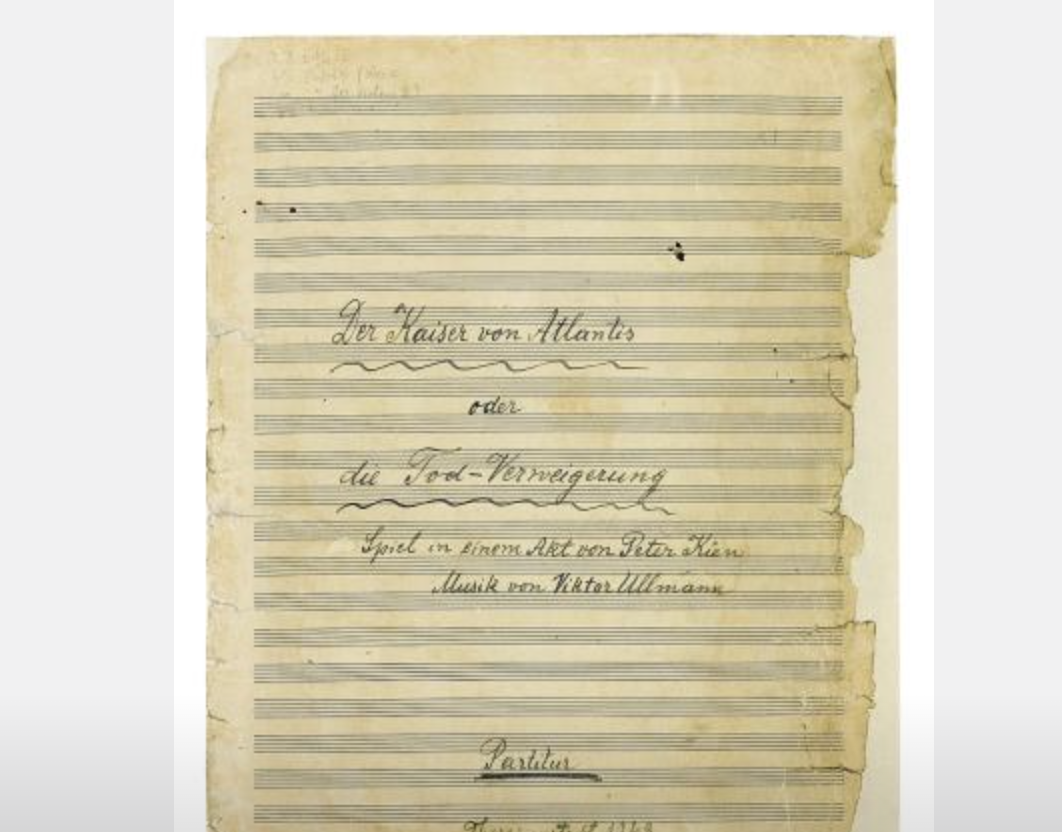 Der Kaiser von Atlantis
oder
die Tod-Verweigerung
Spiel in einem Akt von Peter Kien
Musik von Viktor Ullmann
Partitur